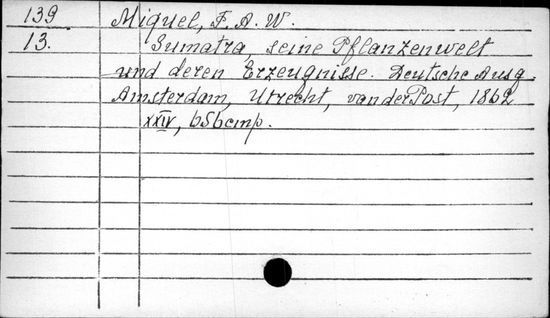 139 Miquel, F. A. W.
13. Sumatra, seine Pflanzenwelt
und deren Erzeugnisse. Deutsche Ausg.
Amsterdam, Utrecht, van der Post, 1862
XXIV,